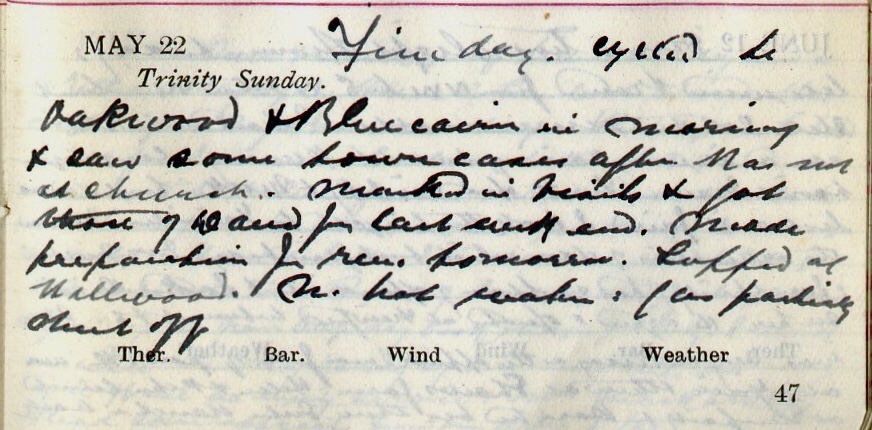 MAY 22 Fine day. cycled to
Trinity Sunday.
Oakwood & Bluecairn in morning
& saw some town cases after Was not
at church. Marked in Visits & got
those of for last week end. Made
preparation for rev. tomorrow. Supped at
Millwood. N. hot water: Gas partially
shut off
Ther. Bar. Wind Weather
47